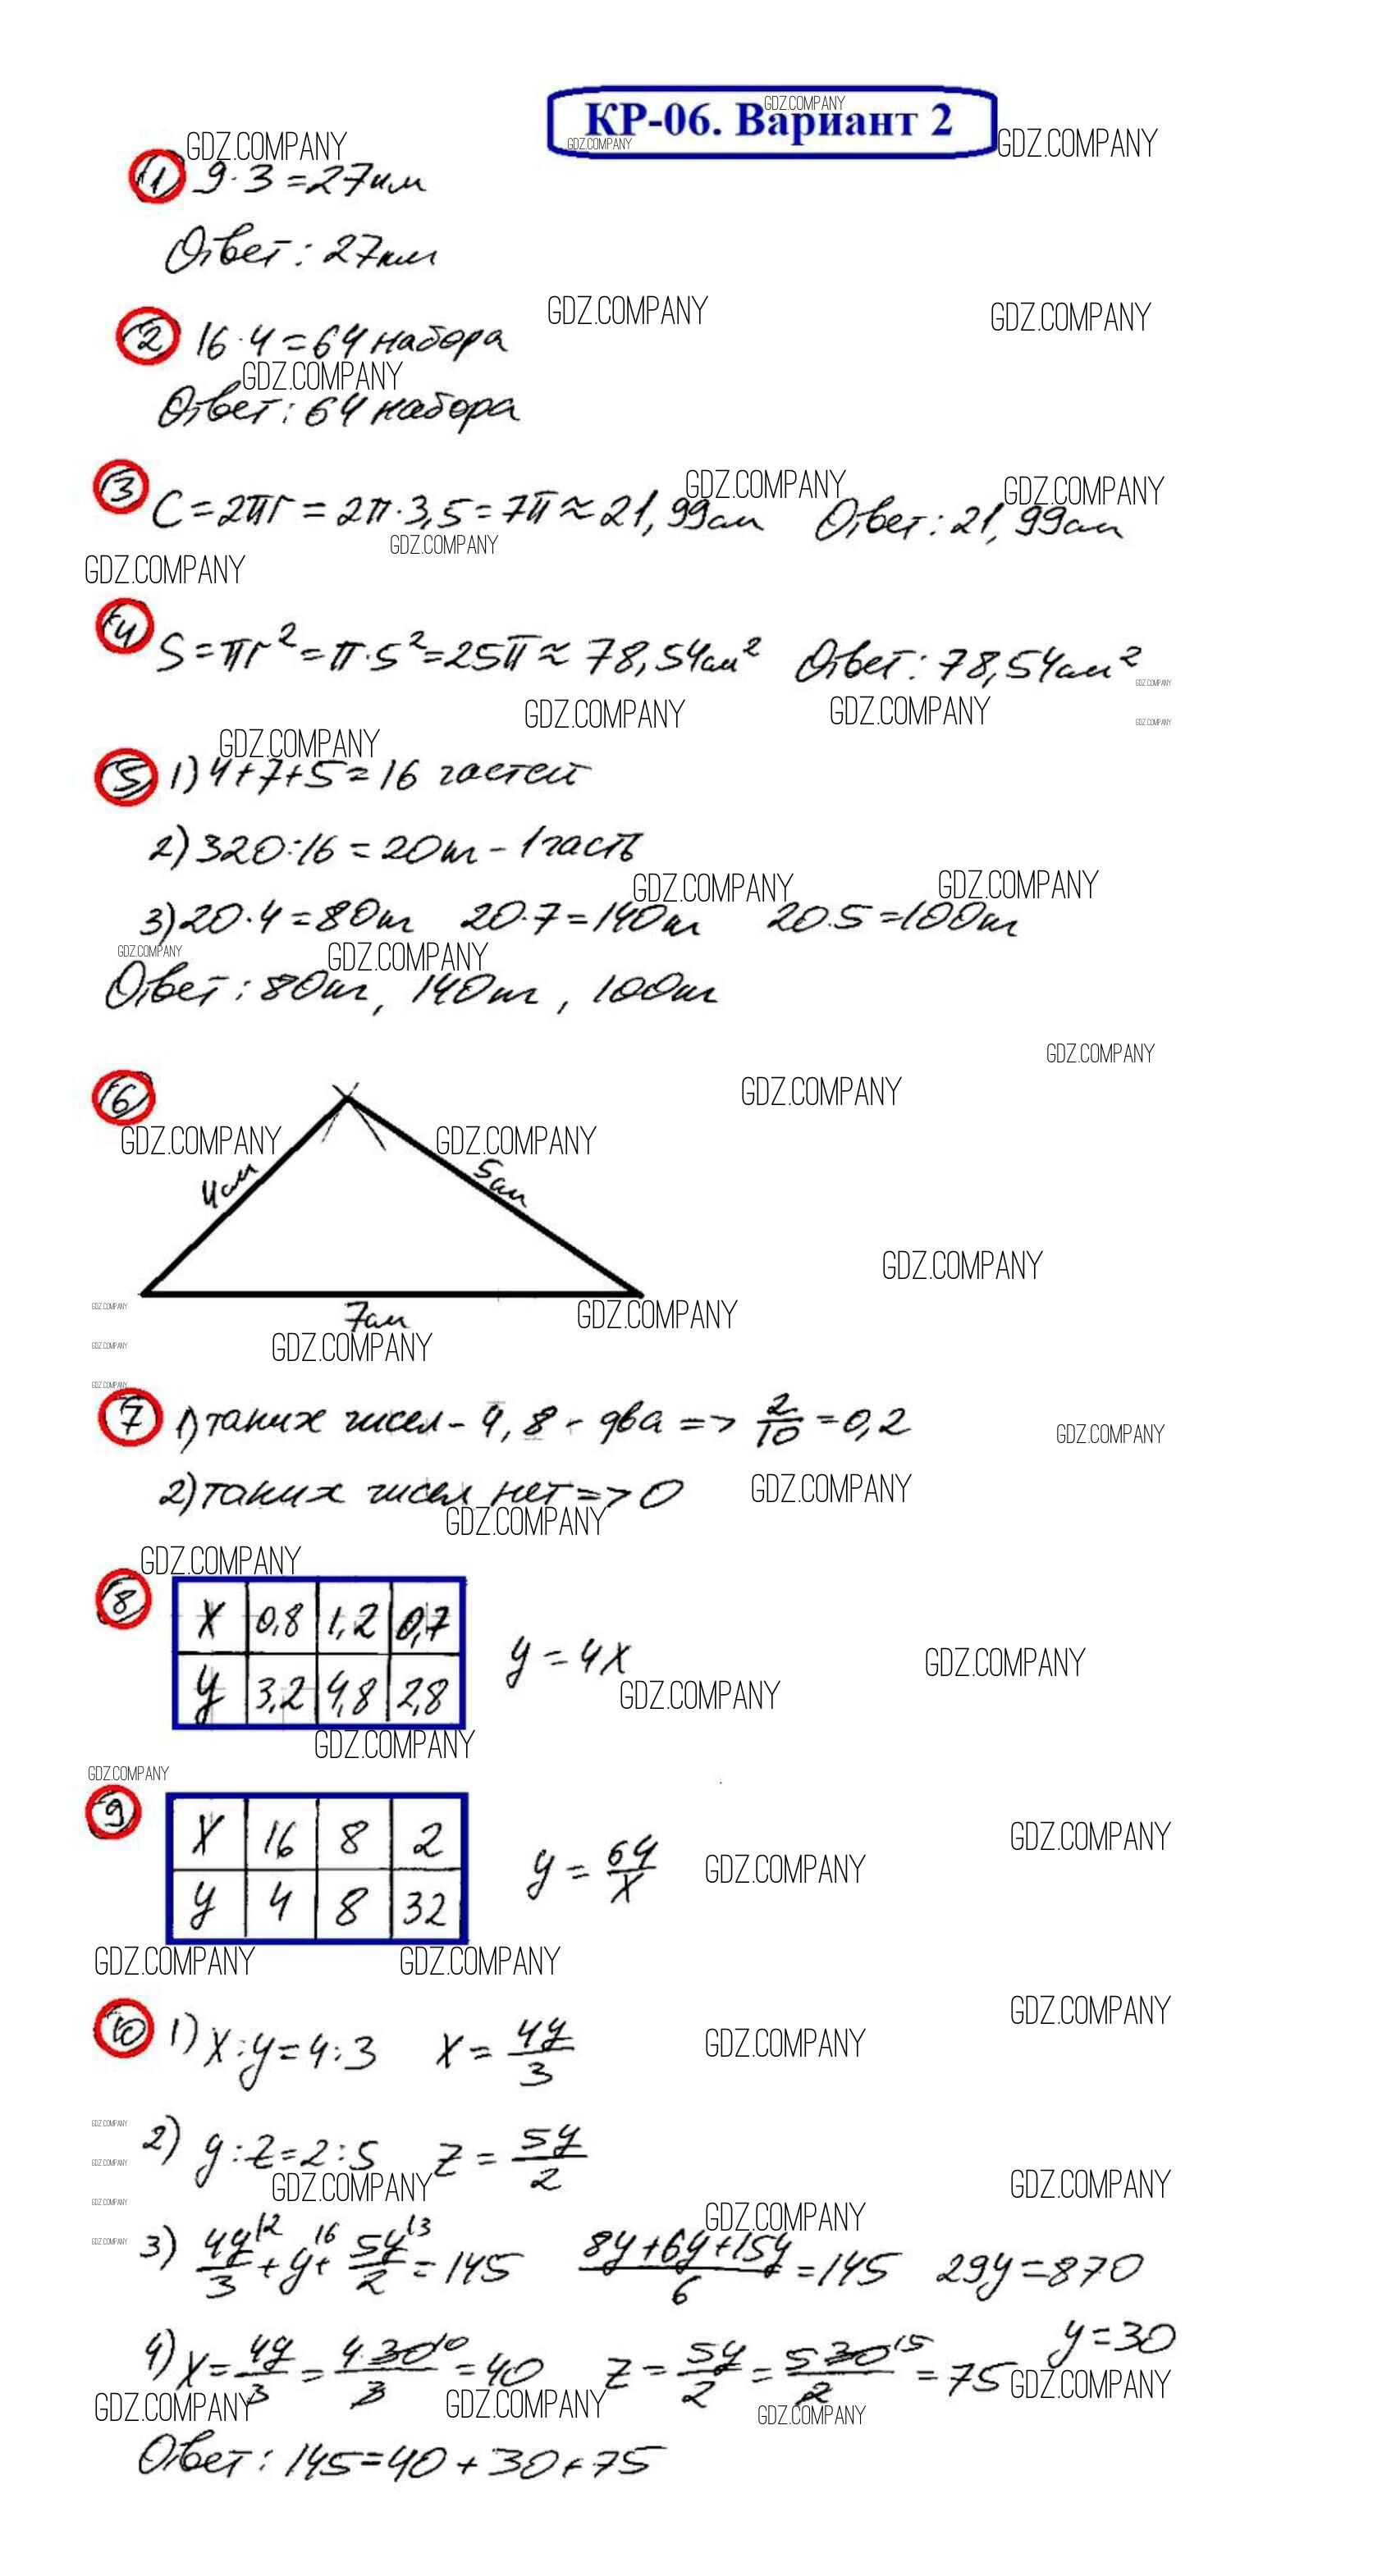 КР-06. Вариант 2
GDZ.COMPANY
① 9·3=27км
Ответ: 27км
② 16·4=64 набора
Ответ: 64 набора
③ C=2πr=2π·3,5=7π≈21,99см Ответ: 21,99см
④ S=πr²=π·5²=25π≈78,54см² Ответ: 78,54см²
⑤ 1) 4+7+5=16 частей
2) 320:16=20т - 1 часть
3) 20·4=80т 20·7=140т 20·5=100т
Ответ: 80т, 140т, 100т
⑥
4см 5см
7см
⑦ 1) таких чисел - 4, 8 - два => 2/10=0,2
2) таких чисел нет => 0
⑧ X 0,8 1,2 0,7
y 3,2 4,8 2,8
y=4x
⑨ X 16 8 2
y 4 8 32
y=64/x
⑩ 1) x:y=4:3 x=4y/3
2) y:z=2:5 z=5y/2
3) 4y/3 |2 + y |6 + 5y/2 |3 =145 (8y+6y+15y)/6=145 29y=870
y=30
4) x=4y/3=4·30/3 10 =40 z=5y/2=5·30/2 15 =75
Ответ: 145=40+30+75